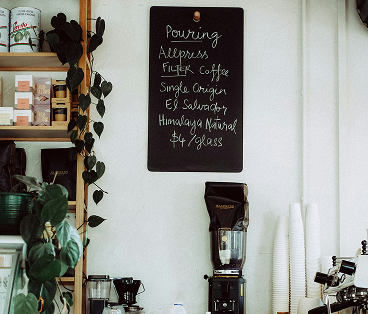 Pouring
Allpress
FILTER Coffee
Single Origin
El Salvador
Himalaya Natural
$4/glass